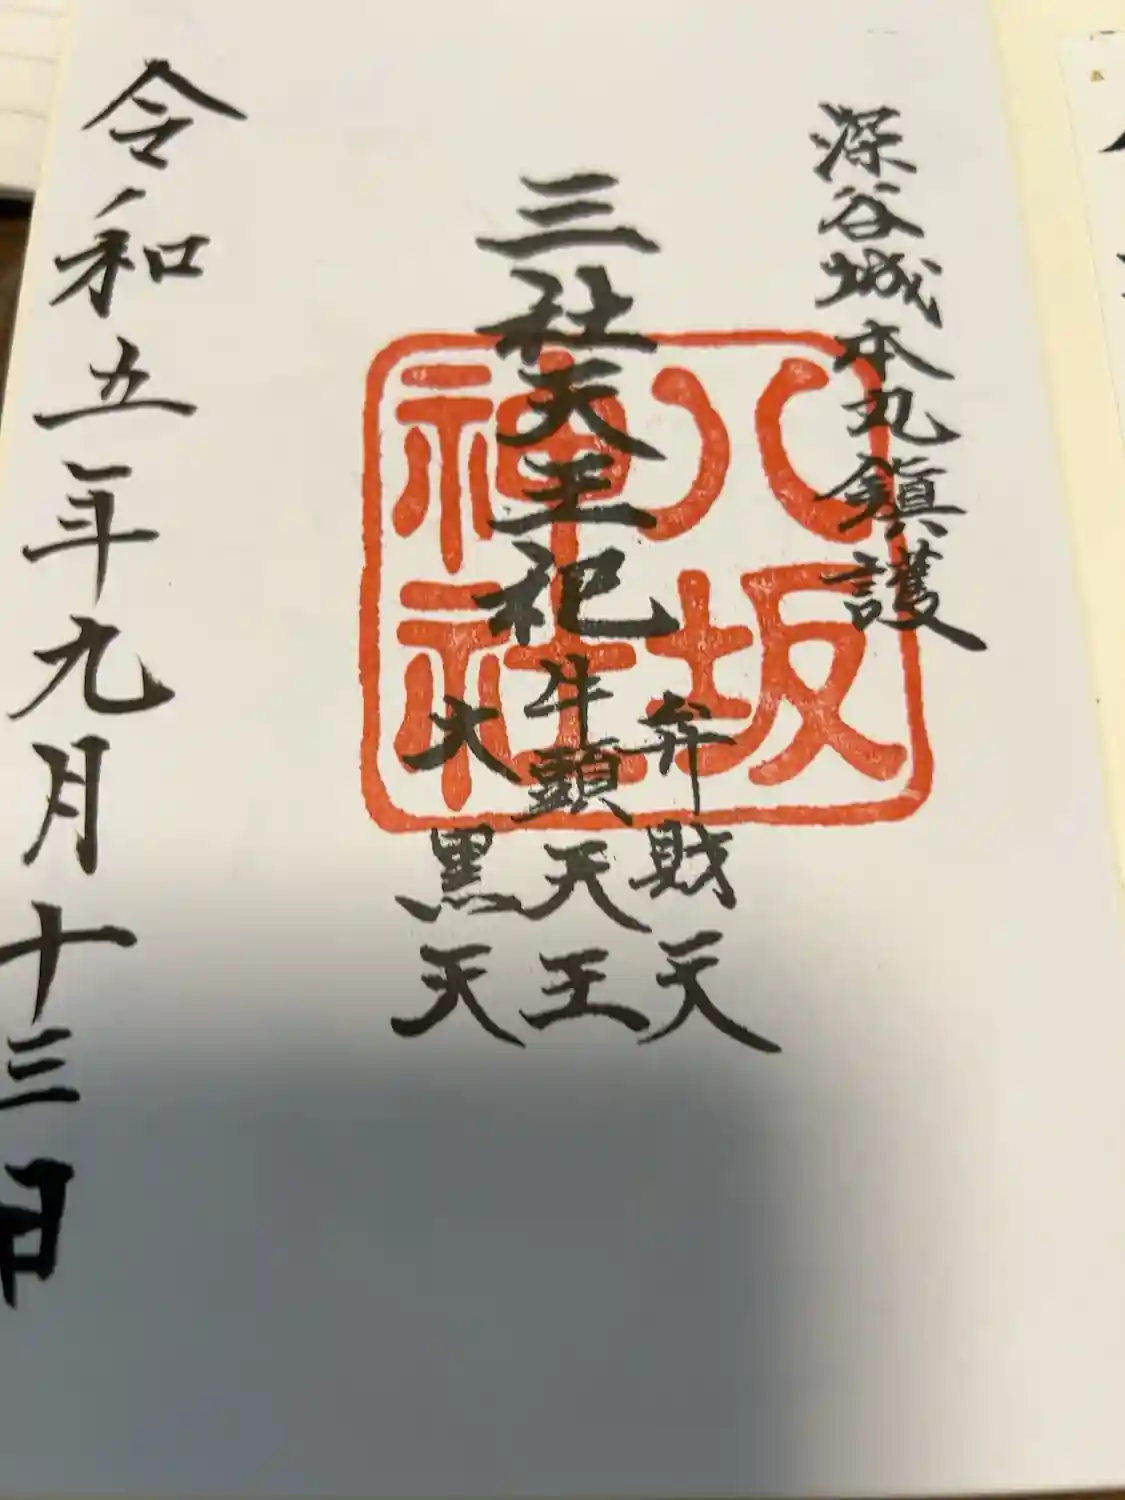 深谷城本丸鎮護
三社天王祀
弁財天
牛頭天王
大黒天
八坂
神社
令和五年九月十三日